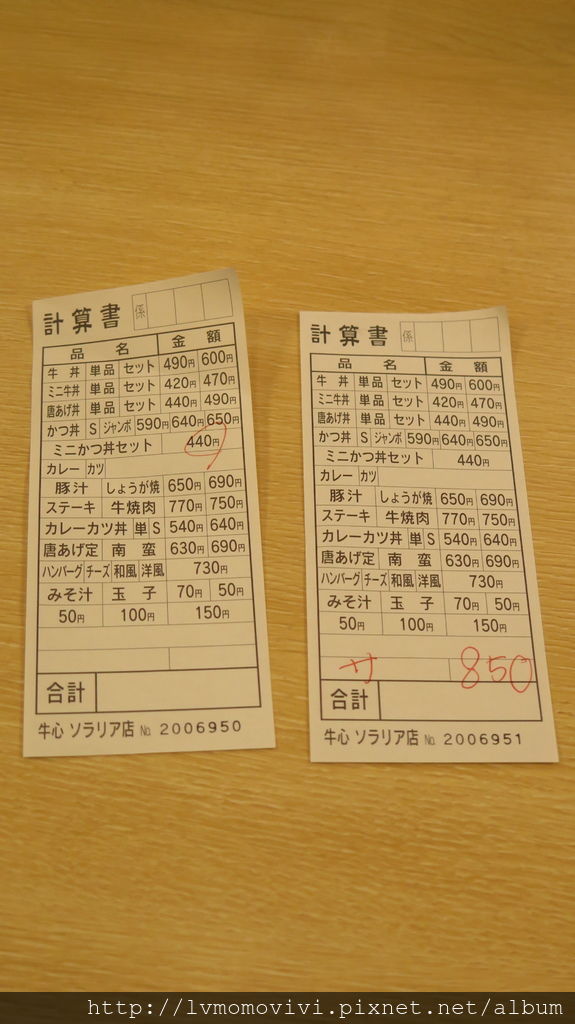 計算書 係
品名 金額
牛丼 単品 セット 490円 600円
ミニ牛丼 単品 セット 420円 470円
唐あげ丼 単品 セット 440円 490円
かつ丼 S ジャンボ 590円 640円 650円
ミニかつ丼セット 440円
カレー カツ
豚汁 しょうが焼 650円 690円
ステーキ 牛焼肉 770円 750円
カレーカツ丼 単 S 540円 640円
唐あげ定 南蛮 630円 690円
ハンバーグ チーズ 和風 洋風 730円
みそ汁 玉子 70円 50円
50円 100円 150円
合計
牛心 ソラリア店 No. 2006950
計算書 係
品名 金額
牛丼 単品 セット 490円 600円
ミニ牛丼 単品 セット 420円 470円
唐あげ丼 単品 セット 440円 490円
かつ丼 S ジャンボ 590円 640円 650円
ミニかつ丼セット 440円
カレー カツ
豚汁 しょうが焼 650円 690円
ステーキ 牛焼肉 770円 750円
カレーカツ丼 単 S 540円 640円
唐あげ定 南蛮 630円 690円
ハンバーグ チーズ 和風 洋風 730円
みそ汁 玉子 70円 50円
50円 100円 150円
サ 850
合計
牛心 ソラリア店 No. 2006951
http://lvmomovivi.pixnet.net/album